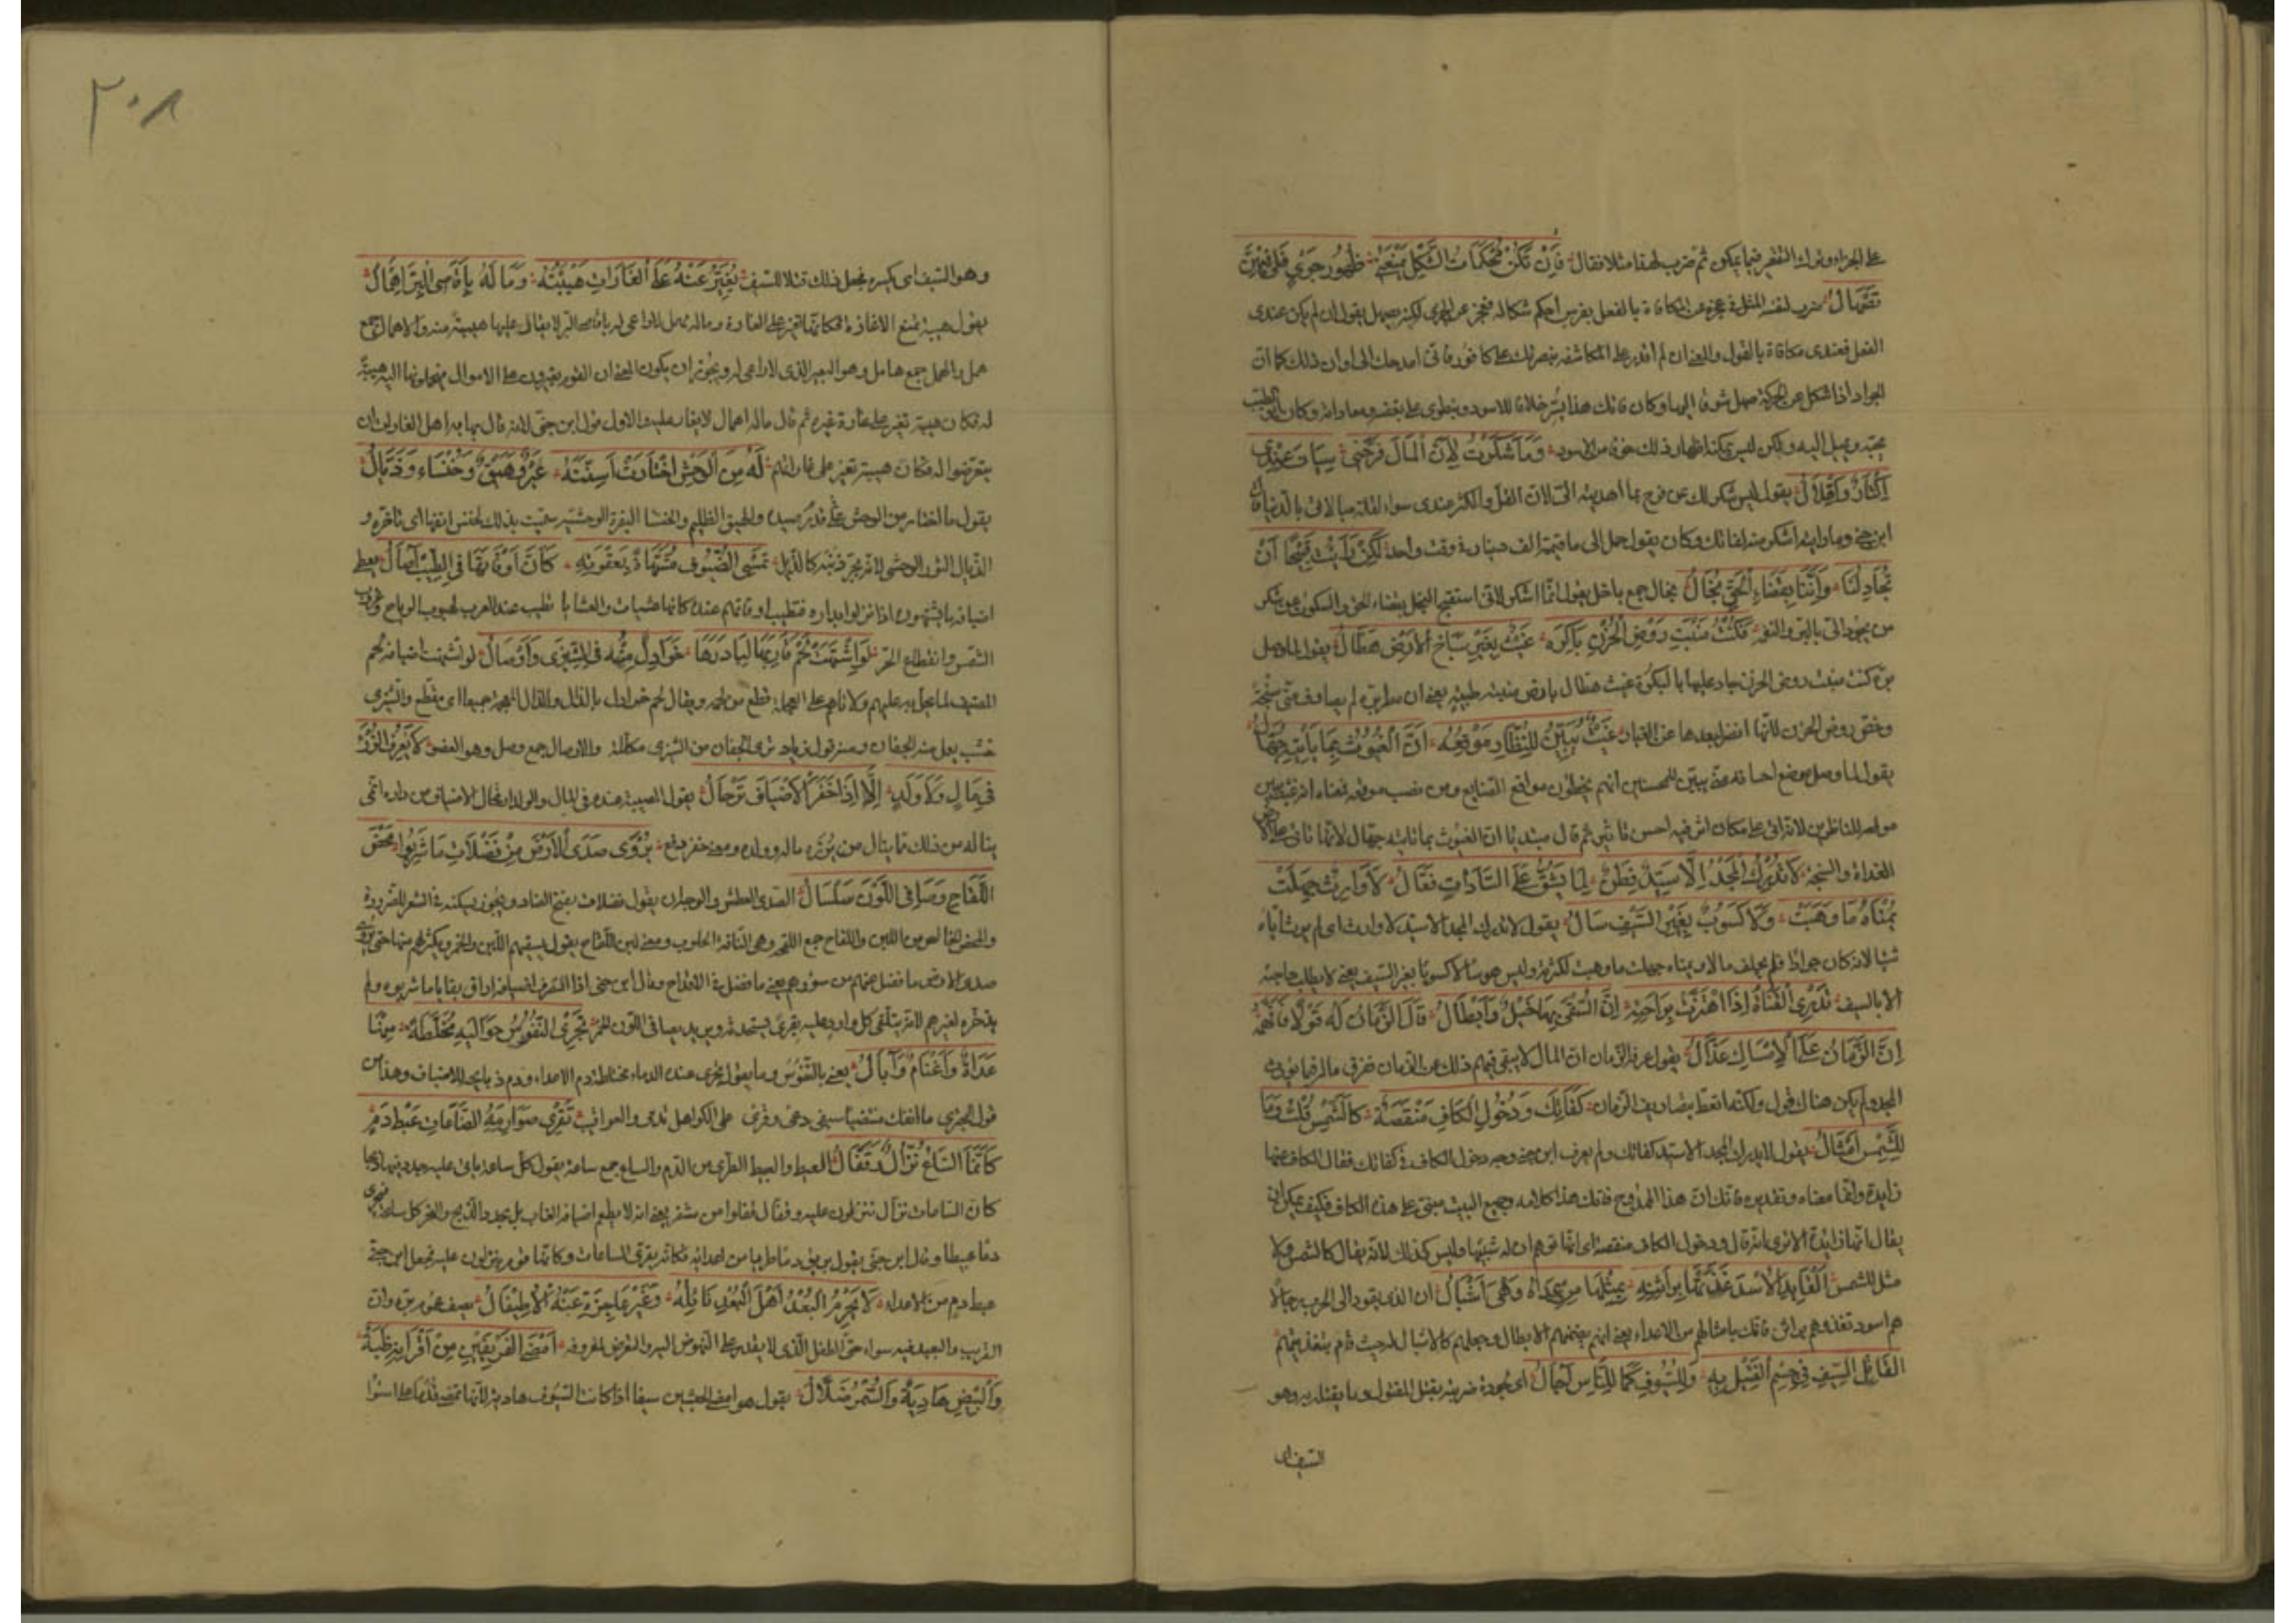 على الجزاء وترك التقصير فيما يمكن ثم ضرب لهذا مثلا فقال فَإِنْ تَكُنْ مُحْكَمَاتُ الشَّكْلِ تَمْنَعُنِي ظُهُورَ جَرْيٍ فَلِي فِيهِنَّ
تَصْهَالُ ضرب لنفسه المثل في عجزه عن المكافاة بالفعل بفرس احكم شكاله فعجز عن الجري لكنه يصهل يقول ان لم يكن عندي
الفعل فعندي مكافاة بالقول والمعنى ان لم اقدر على المكاشفة بنصرتك على كافور فاني امدحك الى اوان ذلك كما ان
الجواد اذا شكل عن الحركة صهل شوقا اليها وكان فاتك هذا يسر خلافا للاسود وينطوي على بغضه ومعاداته وكان ابو الطيب
يحبه ويميل اليه ولكن ليس يمكنه اظهار ذلك خوفا من الاسود وَمَا شَكَرْتُ لِأَنَّ الْمَالَ فَرَّحَنِي سِيَّانِ عِنْدِي
إِكْثَارٌ وَإِقْلَالُ يقول ليس شكر لك عن فرح بما اهديته الي لان القل والكثر عندي سواء لقلة مبالاتي بالدنيا قال
ابن جني وما رايته اشكر منه لفاتك وكان يقول حمل الي ما قيمته الف دينار في وقت واحد لَكِنْ رَأَيْتُ قَبِيحًا أَنْ
يُجَادَ لَنَا وَأَنَّنَا بِقَضَاءِ الْحَقِّ بُخَّالُ بخال جمع باخل يقول انما اشكر لاني استقبح البخل بقضاء الحق والسكوت عن شكر
من يجود الي بالبر والنفع فَكُنْتُ مَنْبِتَ رَوْضِ الْحَزْنِ بَاكَرَهُ غَيْثٌ بِغَيْرِ سِبَاخِ الْأَرْضِ هَطَّالُ يقول لما وصل
بره كنت منبت روض الحزن جاد عليها بالبكرة غيث هطال بارض منبتة طيبة يعني ان مطر بره لم يصادف مني سبخة
وخص روض الحزن لانها انضر لبعدها عن الغبار غَيْثٌ يُبَيِّنُ لِلنُّظَّارِ مَوْقِعُهُ أَنَّ الْغُيُوثَ بِمَا تَأْتِيهِ جُهَّالُ
يقول لما وصل موضع احسانه مني يبين للمحسنين انهم يخطئون مواقع الصنايع ومن نصب موقعه فمعناه انه غيث يبين
موقعه للناظرين لانه اتى على مكان اثر فيه احسن تاثير ثم قال مبتديا ان الغيوث بما تاتيه جهال لانها تاتي على الارض
الغداة والسبخة لَا يُدْرِكُ الْمَجْدَ إِلَّا سَيِّدٌ فَطِنٌ لِمَا يَشُقُّ عَلَى السَّادَاتِ فَعَّالُ لَا وَارِثٌ جَهِلَتْ
يُمْنَاهُ مَا وَهَبَتْ وَلَا كَسُوبٌ بِغَيْرِ السَّيْفِ سَآلُ يقول لا يدرك المجد الا سيد لا وارث اي لم يرث اباه
شيا لانه كان جوادا فلم يخلف مالا ويمناه جهلت ما وهبت لكثرته وليس هو سآلا كسوبا بغير السيف يعني لا يطلب حاجته
الا بالسيف تَدْرِي الْقَنَاةُ إِذَا اهْتَزَّتْ بِرَاحَتِهِ أَنَّ الشَّقِيَّ بِهَا خَيْلٌ وَأَبْطَالُ قَالَ الزَّمَانُ لَهُ قَوْلًا فَأَفْهَمَهُ
إِنَّ الزَّمَانَ عَلَى الْإِمْسَاكِ عَذَّالُ يقول عرفه الزمان ان المال لا يبقى ففهم ذلك عن الزمان ففرق ماله فيما يورث
المجد ولم يكن هناك قول ولكنه اتعظ بتصاريف الزمان كَفَاتِكٍ وَدُخُولُ الْكَافِ مَنْقَصَةٌ كَالشَّمْسِ قُلْتُ وَمَا
لِلشَّمْسِ أَمْثَالُ يقول لا يدرك المجد الا سيد كفاتك ولم يعرف ابن جني وجه دخول الكاف في كفاتك فقال الكاف هنا
زايدة وانما معناه وتقديره فاتك اي هذا الممدوح فاتك هذا كلامه وجميع البيت مبني على هذه الكاف فكيف يمكن ان
يقال انها زايدة الا ترى انه قال ودخول الكاف منقصة اي انها توهم ان له شبيها وليس كذلك لانه يقال كالشمس ولا
مثل للشمس الْقَائِدُ الْأُسْدَ غَذَّتْهَا بَرَاثِنُهُ بِمِثْلِهَا مِنْ عِدَاهُ وَهْيَ أَشْبَالُ اي الذي يقود الى الحرب رجالا
هم اسود تغذوهم براثن فاتك بامثالهم من الاعداء يعني انهم يغنمهم الابطال وجعلهم كالاشبال له حيث قام بتغذيتهم
الْقَاتِلُ السَّيْفَ فِي جِسْمِ الْقَتِيلِ بِهِ وَلِلسُّيُوفِ كَمَا لِلنَّاسِ آجَالُ اي لجودة ضربته يقتل المقتول وما يقتله به وهو
السيف اي
٢٠٨
وهو السيف اي يكسره فجعل ذلك قتلا للسيف تُغِيرُ عَنْهُ عَلَى الْغَارَاتِ هَيْبَتُهُ وَمَا لَهُ بِأَقَاصِي الْبَرِّ أَهْمَالُ
يقول هيبته تمنع الاغارة فكانها تغير على الغارة وماله مهمل لا راعي له باقاصي البر لا يغار عليها هيبة منه والاهمال جمع
همل والهمل جمع هامل وهو البعير الذي لا راعي له ويجوز ان يكون المعنى ان القوم يغيرون على الاموال فيحملونها اليه هيبة
له فكان هيبته تغير على غارة غيره ثم قال ماله اهمال لا يغار عليه والاول قول ابن جني لانه قال يهابه اهل الغارات ان
يتعرضوا له فكان هيبته تغير على غاراتهم لَهُ مِنَ الْوَحْشِ مَا اخْتَارَتْ أَسِنَّتُهُ عَيْرٌ وَهَيْقٌ وَخَنْسَاءُ وَذَيَّالُ
يقول ما اختار من الوحش على صيده والهيق الظليم والخنسا البقرة الوحشية سميت بذلك لخنس انفها اي تاخره و
الذيال الثور الوحشي لانه يجر ذنبه كالذيل تُمْسِي الضُّيُوفُ مُشَهَّاةً بِعَقْوَتِهِ كَأَنَّ أَوْقَاتَهَا فِي الطِّيبِ آصَالُ يعطي
اضيافه ما يشتهون اذا نزلوا بداره فتطيب اوقاتهم عنده كانها عشيات والعشايا تطيب عند العرب لهبوب الرياح وغروب
الشمس وانقطاع الحر لَوِ اشْتَهَتْ لَحْمَ قَارِيهَا لَبَادَرَهَا خَرَادِلٌ مِنْهُ فِي الشِّيزَى وَأَوْصَالُ لو اشتهت اضيافه لحم
المضيف لما بخل به عليهم ولاتاهم على العجلة قطع من لحمه ويقال لحم خرادل بالدال والذال المعجمة جميعا اي مقطع والشيزى
خشب يعمل منه الجفان والاوصال جمع وصل وهو العضو لَا يَعْرِفُ الرُّزْءَ
فِي مَالٍ وَلَا وَلَدٍ إِلَّا إِذَا حَفَزَ الْأَضْيَافَ تَرْحَالُ يقول المصيبة عنده في المال والولد ارتحال الاضياف من داره اي
يناله من ذلك ما ينال من رزئ ماله وولده ومعنى حفز دفع يُرْوِي صَدَى الْأَرْضِ مِنْ فَضَلَاتِ مَا شَرِبُوا مَحْضُ
اللِّقَاحِ وَصَافِي اللَّوْنِ سَلْسَالُ الصدى العطش يقول فضلات بفتح الضاد ويجوز تسكينه في الشعر للضرورة
والمحض الخالص من اللبن واللقاح جمع اللقحة وهي الناقة الحلوب ومعنى لبن اللقاح يقول يسقيهم اللبن والخمر ويكثر لهم منها حتى يروي
صدى الارض ما فضل عنهم من سؤرهم يعني ما فضل في الاقداح وقال ابن جني اذا انصرف اضيافه اراق بقايا ما شربوه ولم
يدخره لغيرهم لانه يتلقى كل وارد عليه بقرى يستحدثه ويريد بصافي اللون الخمر تَجْرِي النُّفُوسُ حَوَالَيْهِ مُخَلَّطَةً مِنْهَا
عُدَاةٌ وَأَغْنَامٌ وَآبَالُ يعني بالنفوس الدماء يقول يجري عنده الدماء مختلطة دم الاعداء ودم ذبايحه للاضياف وهذا من
قول البحتري ما انفك منتضيا سيفي وغى وقرى على الكواهل تدمى والعراقيب تَقْرِي صَوَارِمُهُ السَّاعَاتِ عَبْطَ دَمٍ
كَأَنَّمَا السَّاعُ نُزَّالٌ وَقُفَّالُ العبط والعبيط الطري من الدم والساع جمع ساعة يقول كل ساعة ياتي عليه يجدد فيها ذبحا
كان الساعات نزال تنزلون عليه وقفال قفلوا من سفر يعني انه لا يطعم اضيافه الغاب بل يجدد الذبح والنحر كل ساعة فيجري
دما عبيطا وقال ابن جني يقول يريق دما طريا من اعدائه فكانه يقري الساعات وكانها قوم ينزلون عليه فجعل ابن جني
عبط دم من الاعداء لَا يَحْرِمُ الْبُعْدُ أَهْلَ الْبُعْدِ نَائِلَهُ وَغَيْرُ عَاجِزَةٍ عَنْهُ الْأُطَيْفَالُ يصف عموم بره وان
القريب والبعيد فيه سواء حتى الطفل الذي لا يقدر على النهوض اليه والتعرض لمعروفه أَمْضَى الْفَرِيقَيْنِ مِنْ أَقْرَانِهِ ظُبَةً
وَالْبِيضُ هَادِيَةٌ وَالسُّمْرُ ضُلَّالُ يقول هو امضى الجيشين سيفا اذا كانت السيوف هادية لانها تمضي قدما على استوا